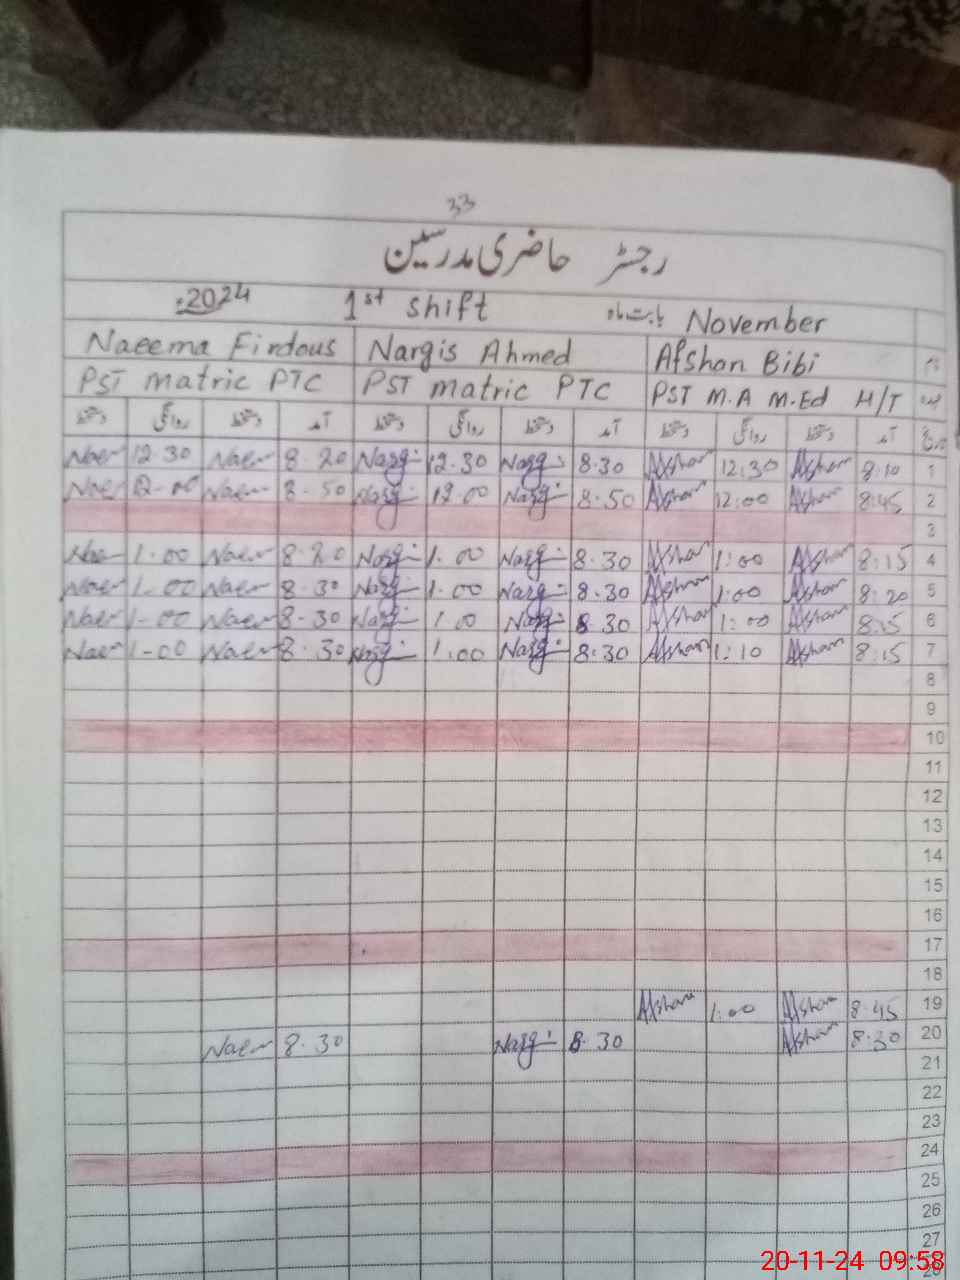 33
رجسٹر حاضری مدرسین
بابت ماہ November 1st shift 2024
Naeema Firdous Nargis Ahmed Afshan Bibi
PST matric PTC PST matric PTC PST M.A M.Ed H/T
دستخط روانگی دستخط آمد دستخط روانگی دستخط آمد دستخط روانگی دستخط آمد تاریخ
Naee 12.30 Naee 8.20 Narg 12.30 Narg 8.30 Afshan 12:30 Afshan 8:10 1
Naee 12-00 Naee 8.50 Narg 12.00 Narg 8.50 Afshan 12:00 Afshan 8:45 2
3
Naee 1.00 Naee 8.20 Narg 1.00 Narg 8.30 Afshan 1:00 Afshan 8:15 4
Naee 1.00 Naee 8.30 Narg 1.00 Narg 8.30 Afshan 1:00 Afshan 8:20 5
Naee 1-00 Naee 8.30 Narg 1.00 Narg 8.30 Afshan 1:00 Afshan 8:15 6
Naee 1-00 Naee 8.30 Narg 1.00 Narg 8.30 Afshan 1:10 Afshan 8:15 7
8
9
10
11
12
13
14
15
16
17
18
Afshan 1:00 Afshan 8:45 19
Naee 8.30 Narg 8.30 Afshan 8:30 20
21
22
23
24
25
26
27
20-11-24 09:58